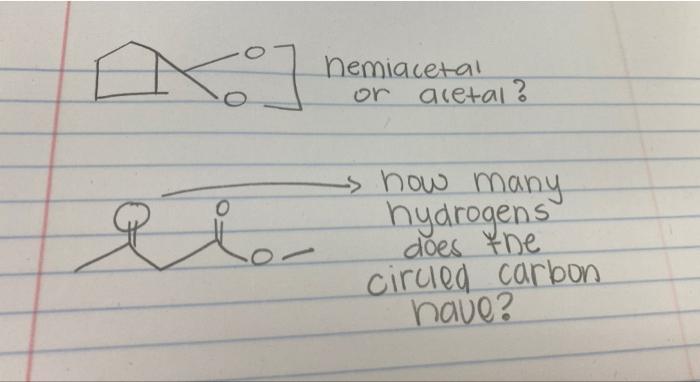 O
O
hemiacetal
or acetal?
O
O
how many
hydrogens
does the
circled carbon
have?